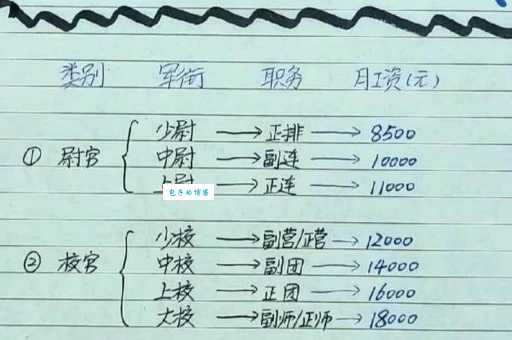 类别 军衔 职务 月工资(元)
少尉 → 正排 → 8500
① 尉官 { 中尉 → 副连 → 10000
上尉 → 正连 → 11000
包子的博客
少校 → 副营/正营 → 12000
② 校官 { 中校 → 副团 → 14000
上校 → 正团 → 16000
大校 → 副师/正师 → 18000